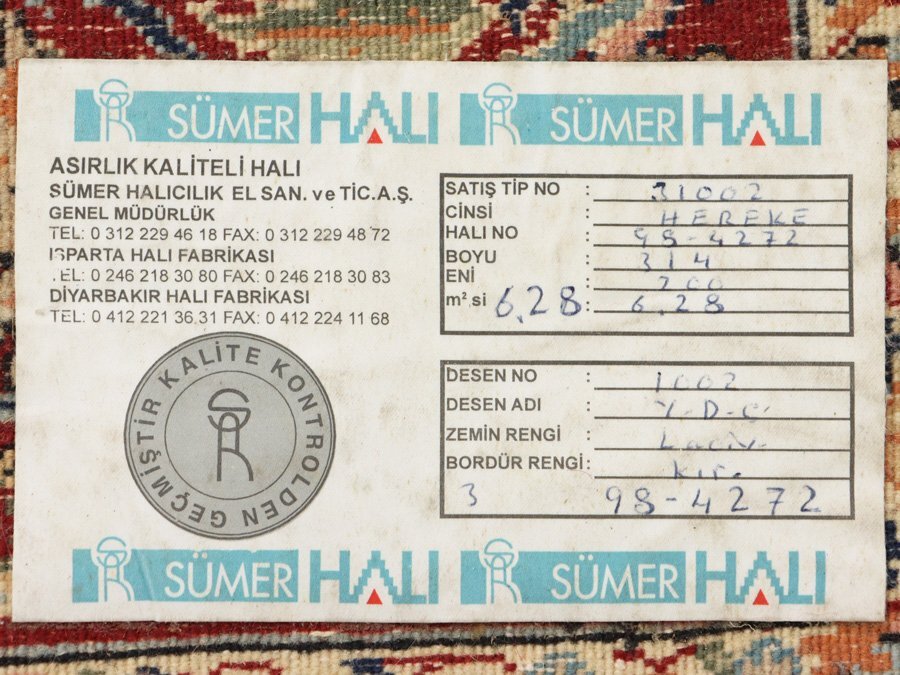 SÜMER HALI SÜMER HALI
ASIRLIK KALİTELİ HALI
SÜMER HALICILIK EL SAN. ve TİC.A.Ş.
GENEL MÜDÜRLÜK
TEL: 0 312 229 46 18 FAX: 0 312 229 48 72
ISPARTA HALI FABRİKASI
TEL: 0 246 218 30 80 FAX: 0 246 218 30 83
DİYARBAKIR HALI FABRİKASI
TEL: 0 412 221 36 31 FAX: 0 412 224 11 68
KALİTE KONTROLDEN GEÇMİŞTİR
SATIŞ TİP NO : 31002
CİNSİ : HEREKE
HALI NO : 98-4272
BOYU : 314
ENİ : 200
m² si 6,28 : 6,28
DESEN NO : 1002
DESEN ADI : Y-D-Ç
ZEMİN RENGİ : Laciv.
BORDÜR RENGİ: Kır.
3 98-4272
SÜMER HALI SÜMER HALI